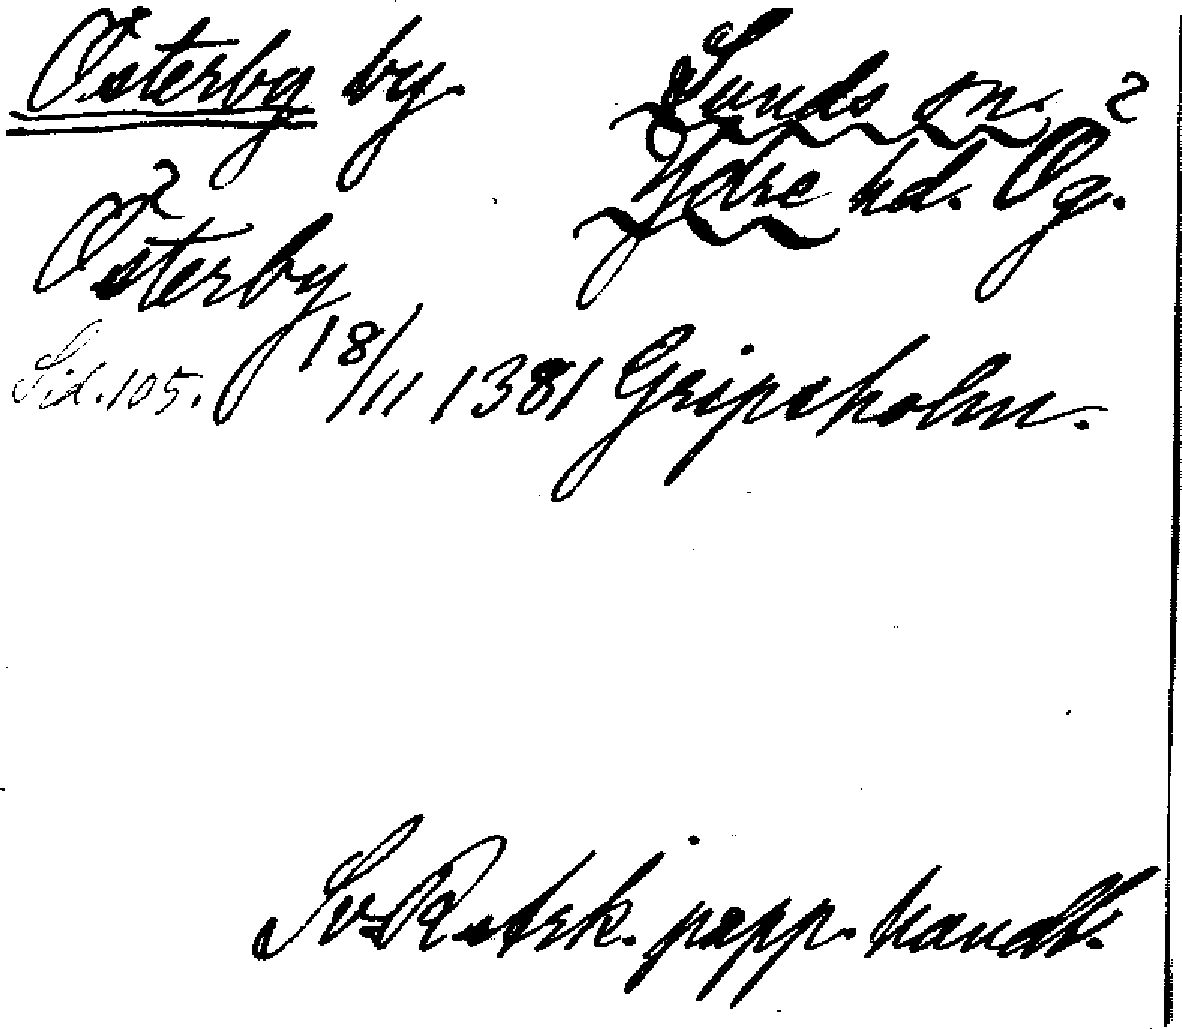 Österby by. Sunds sn. ?
Ydre hd. Ög.
Österby
Sid. 105. 18/11 1381 Gripsholm.
Sv. Riksark. papp. handl.